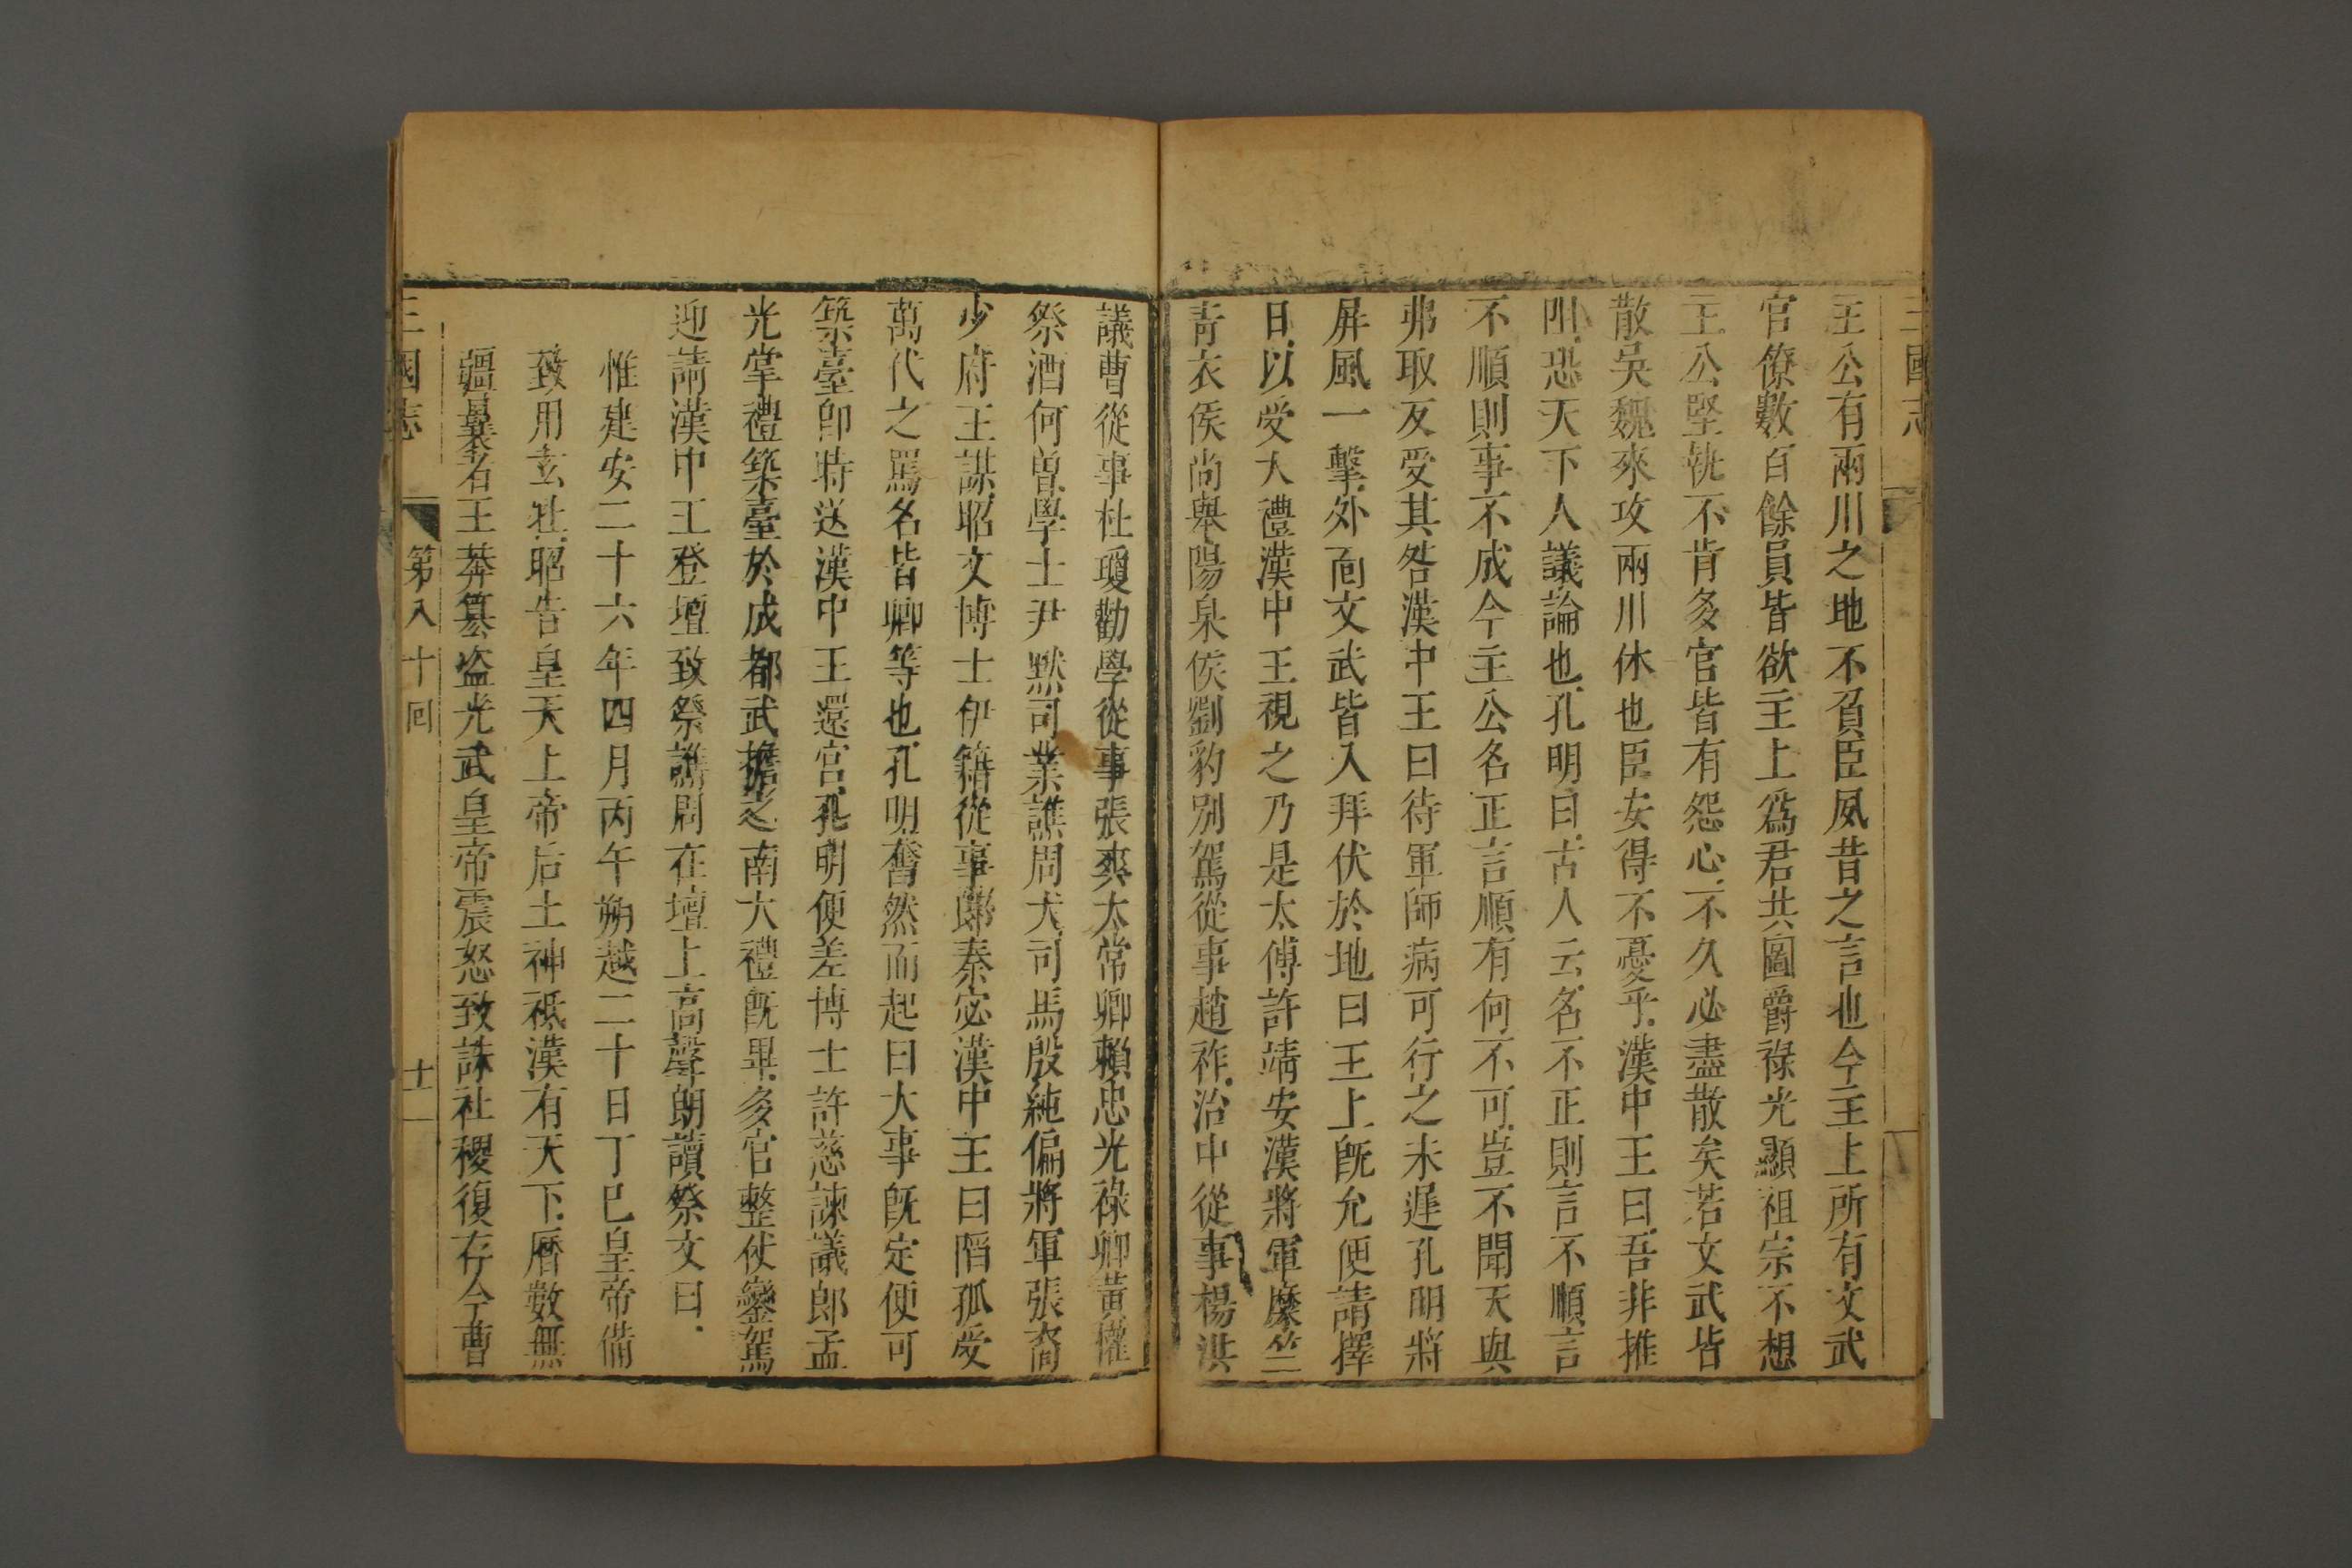 三國志
王公有兩川之地不負臣夙昔之言也今主上所有文武
官僚數百餘員皆欲主上爲君共圖爵祿光顯祖宗不想
王公堅執不肯多官皆有怨心不久必盡散矣若文武皆
散吳魏來攻兩川休也臣安得不憂乎漢中王曰吾非推
阻恐天下人議論也孔明曰古人云名不正則言不順言
不順則事不成今主公名正言順有何不可豈不聞天與
弗取反受其咎漢中王曰待軍師病可行之未遲孔明將
屏風一擊外面文武皆入拜伏於地曰王上旣允便請擇
日以受大禮漢中王視之乃是太傅許靖安漢將軍糜竺
靑衣侯尚舉陽泉侯劉豹別駕從事趙祚治中從事楊洪
議曹從事杜瓊勸學從事張爽太常卿賴忠光祿卿黃權
祭酒何曽學士尹默司業譙周大司馬殷純偏將軍張裔
少府王謀昭文博士伊籍從事郞秦宓漢中王曰陷孤受
萬代之罵名皆卿等也孔明奮然而起曰大事旣定便可
築臺卽時送漢中王還宮孔明便差博士許慈諫議郎孟
光掌禮築臺於成都武擔之南大禮旣畢多官整仗鑾駕
迎請漢中王登壇致祭譙周在壇上高聲朗讀祭文曰
惟建安二十六年四月丙午朔越二十日丁巳皇帝備
致用玄牡昭告皇天上帝后土神祗漢有天下曆數無
疆曩者王莽篡盜光武皇帝震怒致誅社稷復存今曹
三國志　第八十囘　十一